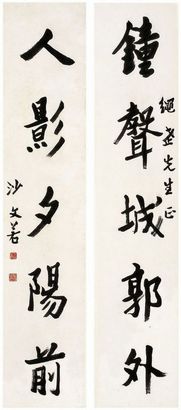 鐘聲城郭外
繩武先生正
人影夕陽前
沙文若